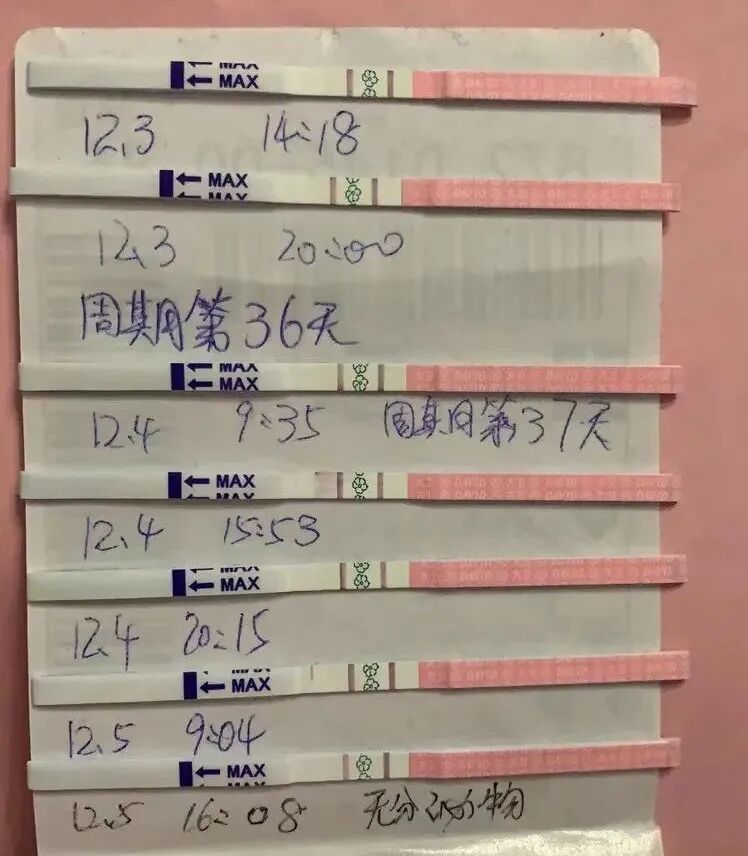 MAX
MAX
12.3 14:18
MAX
MAX
12.3 20:00
周期第36天
MAX
MAX
12.4 9:35 周期第37天
MAX
MAX
12.4 15:53
MAX
MAX
12.4 20:15
MAX
MAX
12.5 9:04
MAX
MAX
12.5 16:08 无分泌物